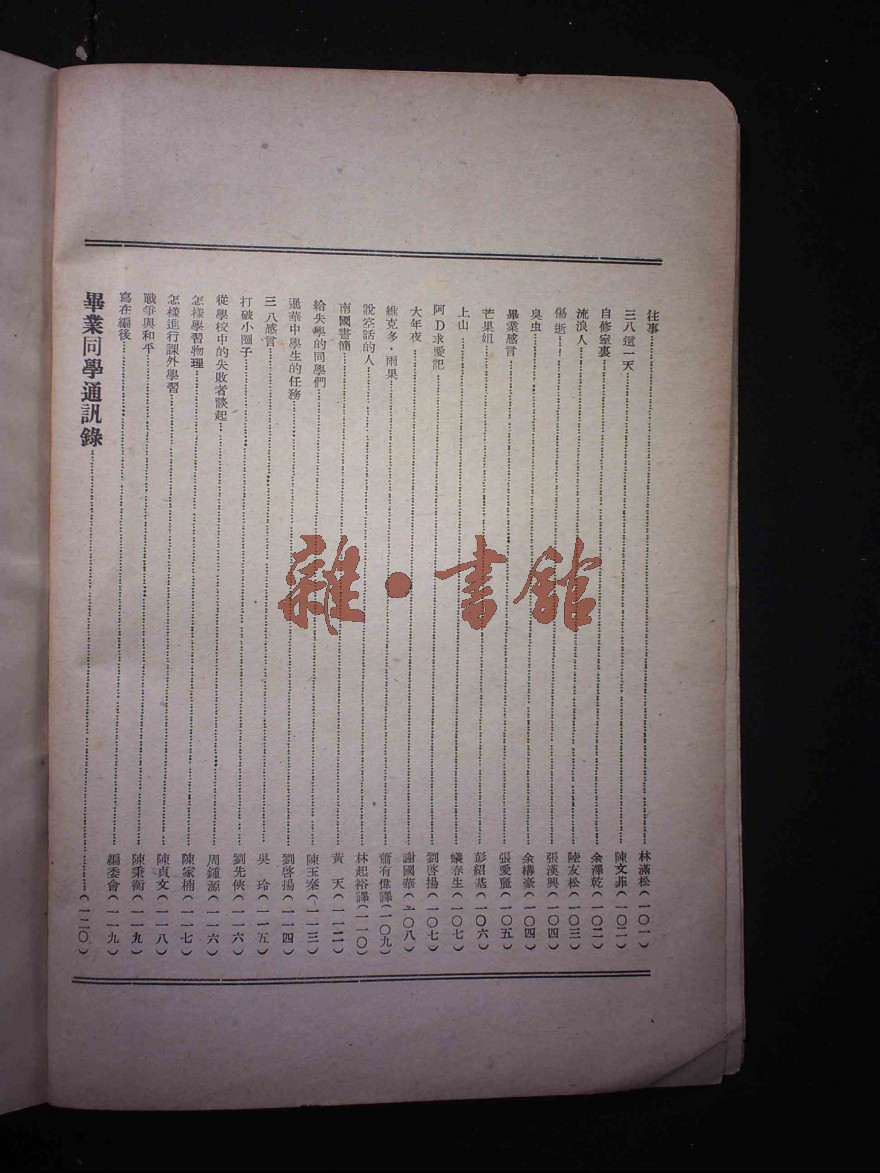 往事……林滿松（一〇一）
三八這一天……陳文菲（一〇二）
自修室裏……余澤乾（一〇二）
流浪人……陸友松（一〇三）
傷逝……張漢興（一〇四）
臭虫……余構豪（一〇四）
畢業感言……張愛麗（一〇五）
芒果姐……彭紹基（一〇六）
上山……蟻春生（一〇七）
阿D求愛記……劉啓揚（一〇七）
大年夜……謝國華（一〇八）
維克多·雨果……蕭有偉譯（一〇九）
說空話的人……林起裕譯（一一〇）
南國書簡……黃天（一一二）
給失學的同學們……陳玉泰（一一三）
暹華中學生的任務……劉啓揚（一一四）
三八感言……吳玲（一一五）
打破小圈子……劉先俠（一一六）
從學校中的失敗者談起……周鍾源（一一六）
怎樣學習物理……陳家楠（一一七）
怎樣進行課外學習……陳貞文（一一八）
戰爭與和平……陳秉衡（一一九）
寫在編後……編委會（一一九）
畢業同學通訊錄……（一二〇）
雜·書館